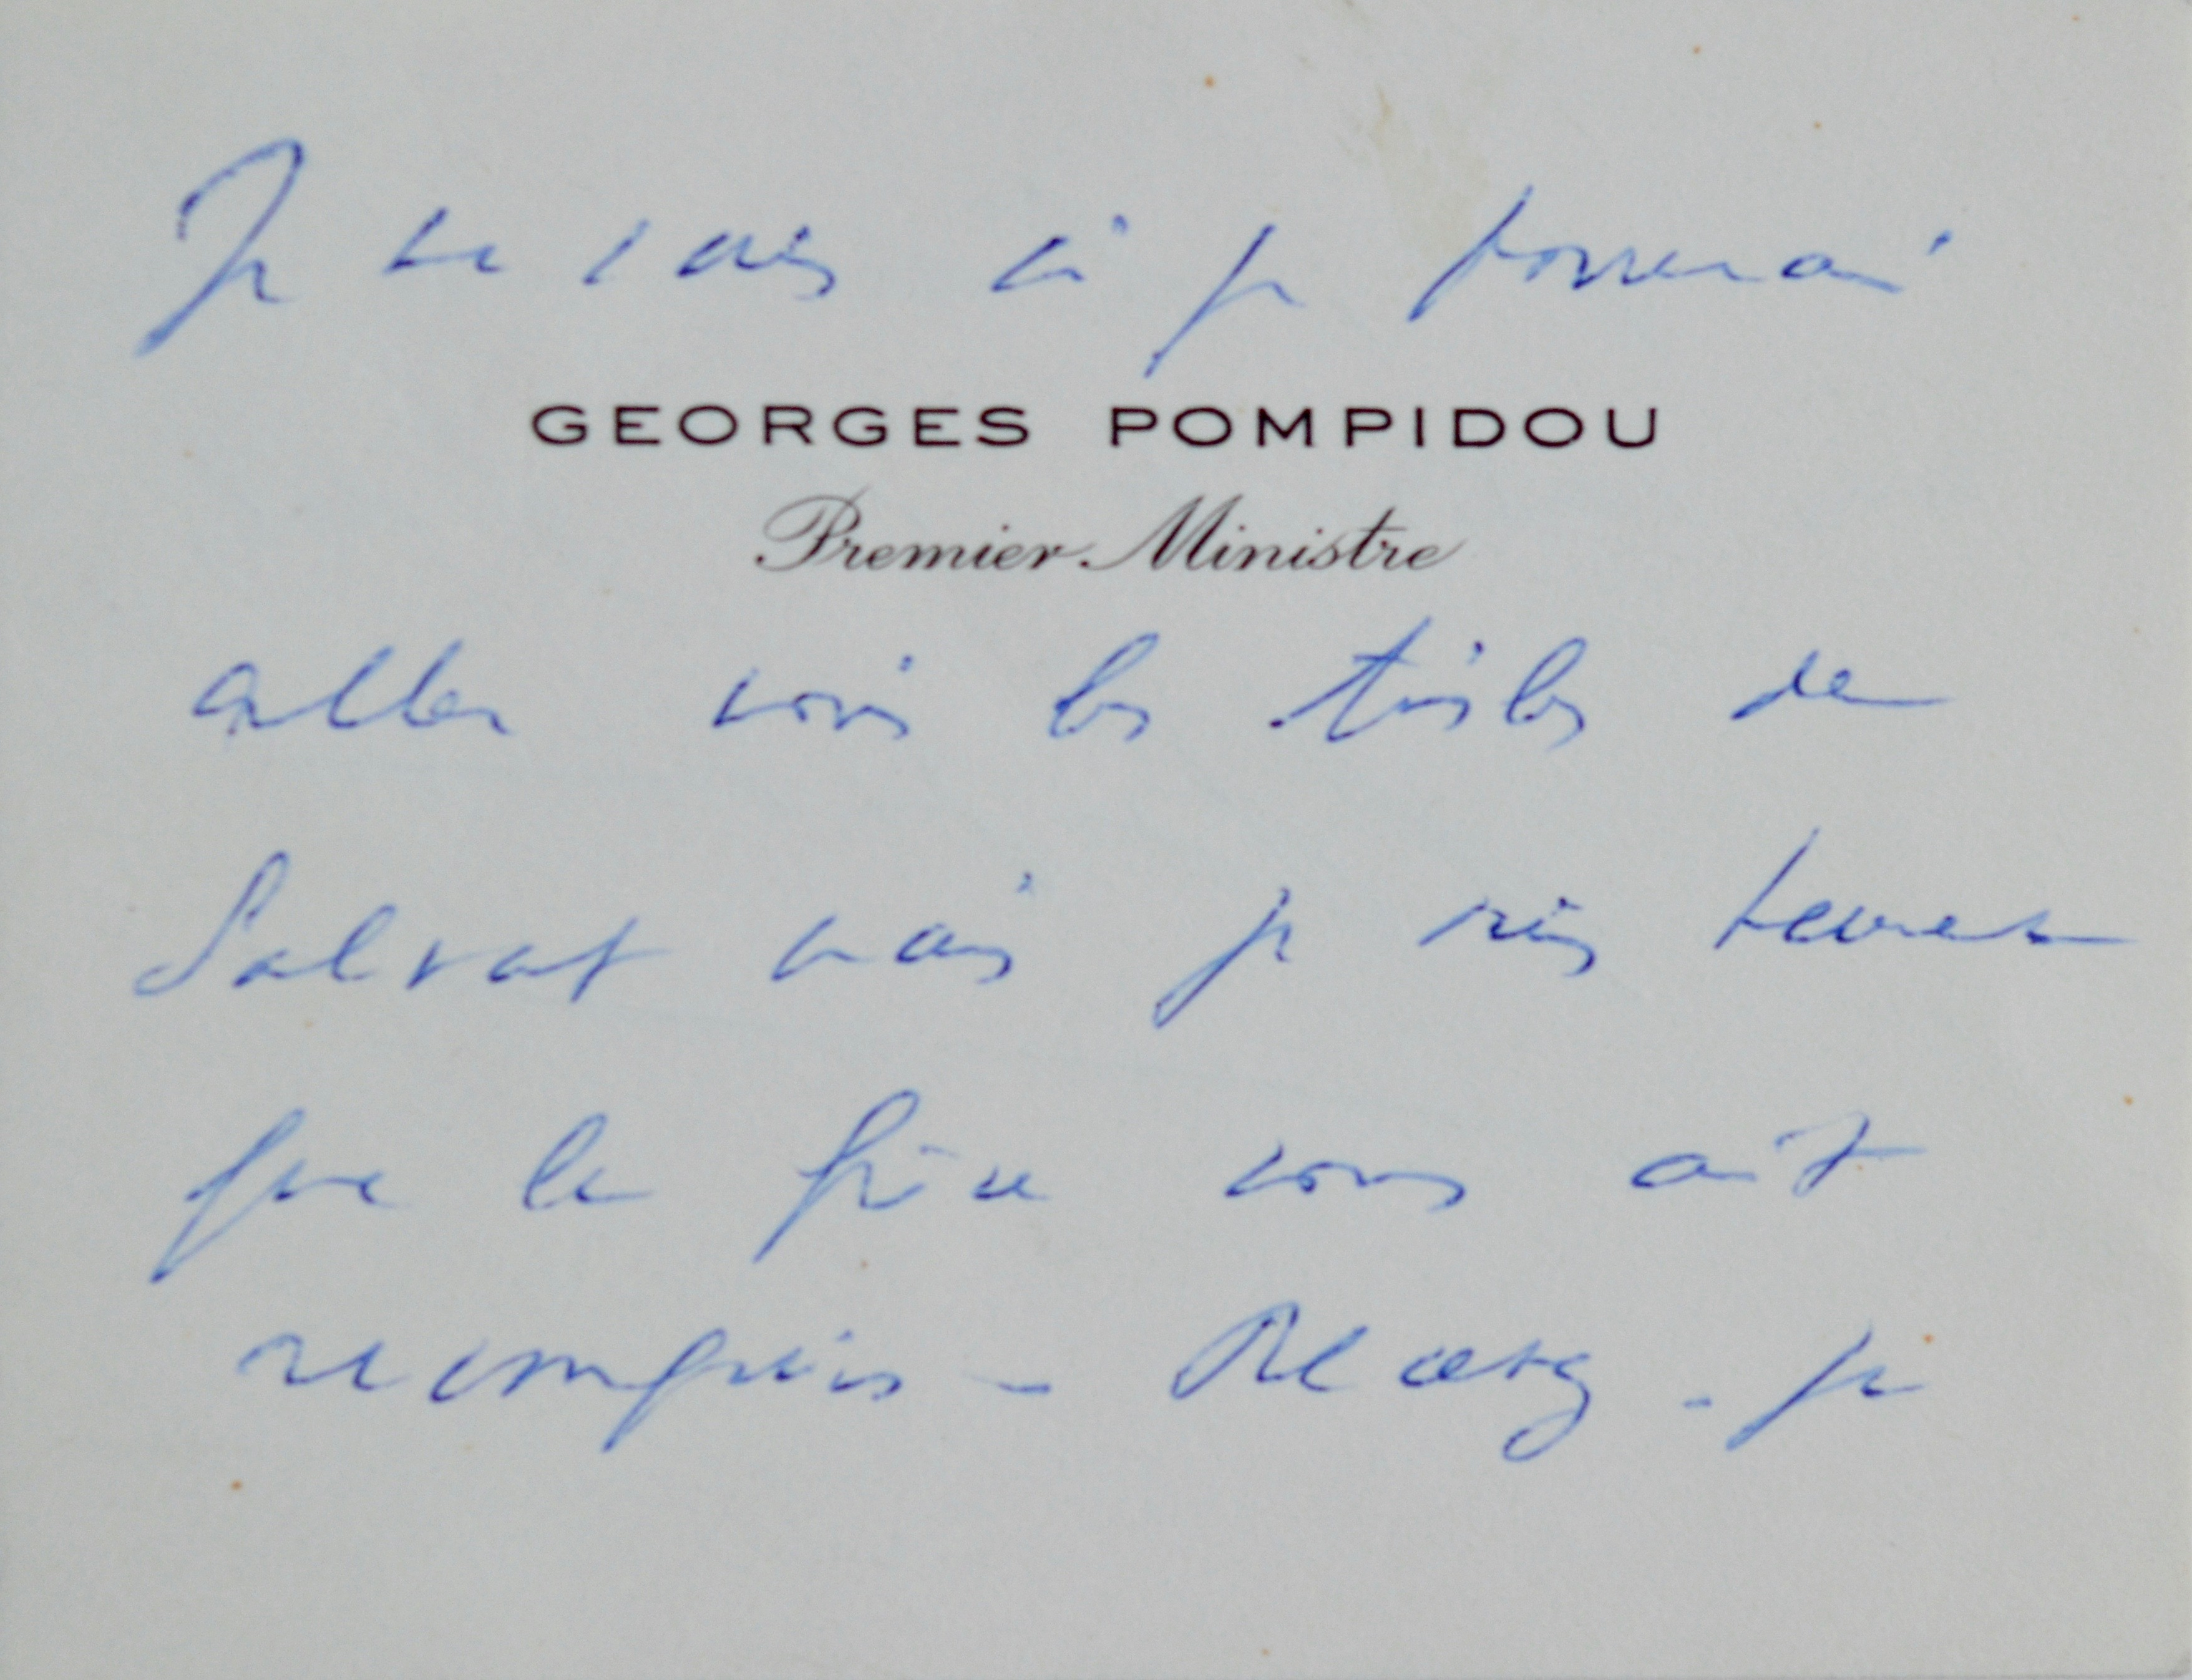 Je ne sais si je pourrai
GEORGES POMPIDOU
Premier Ministre
aller voir les toiles de
Salvat mais je suis heureux
que la pièce vous ait
reconquis - . je